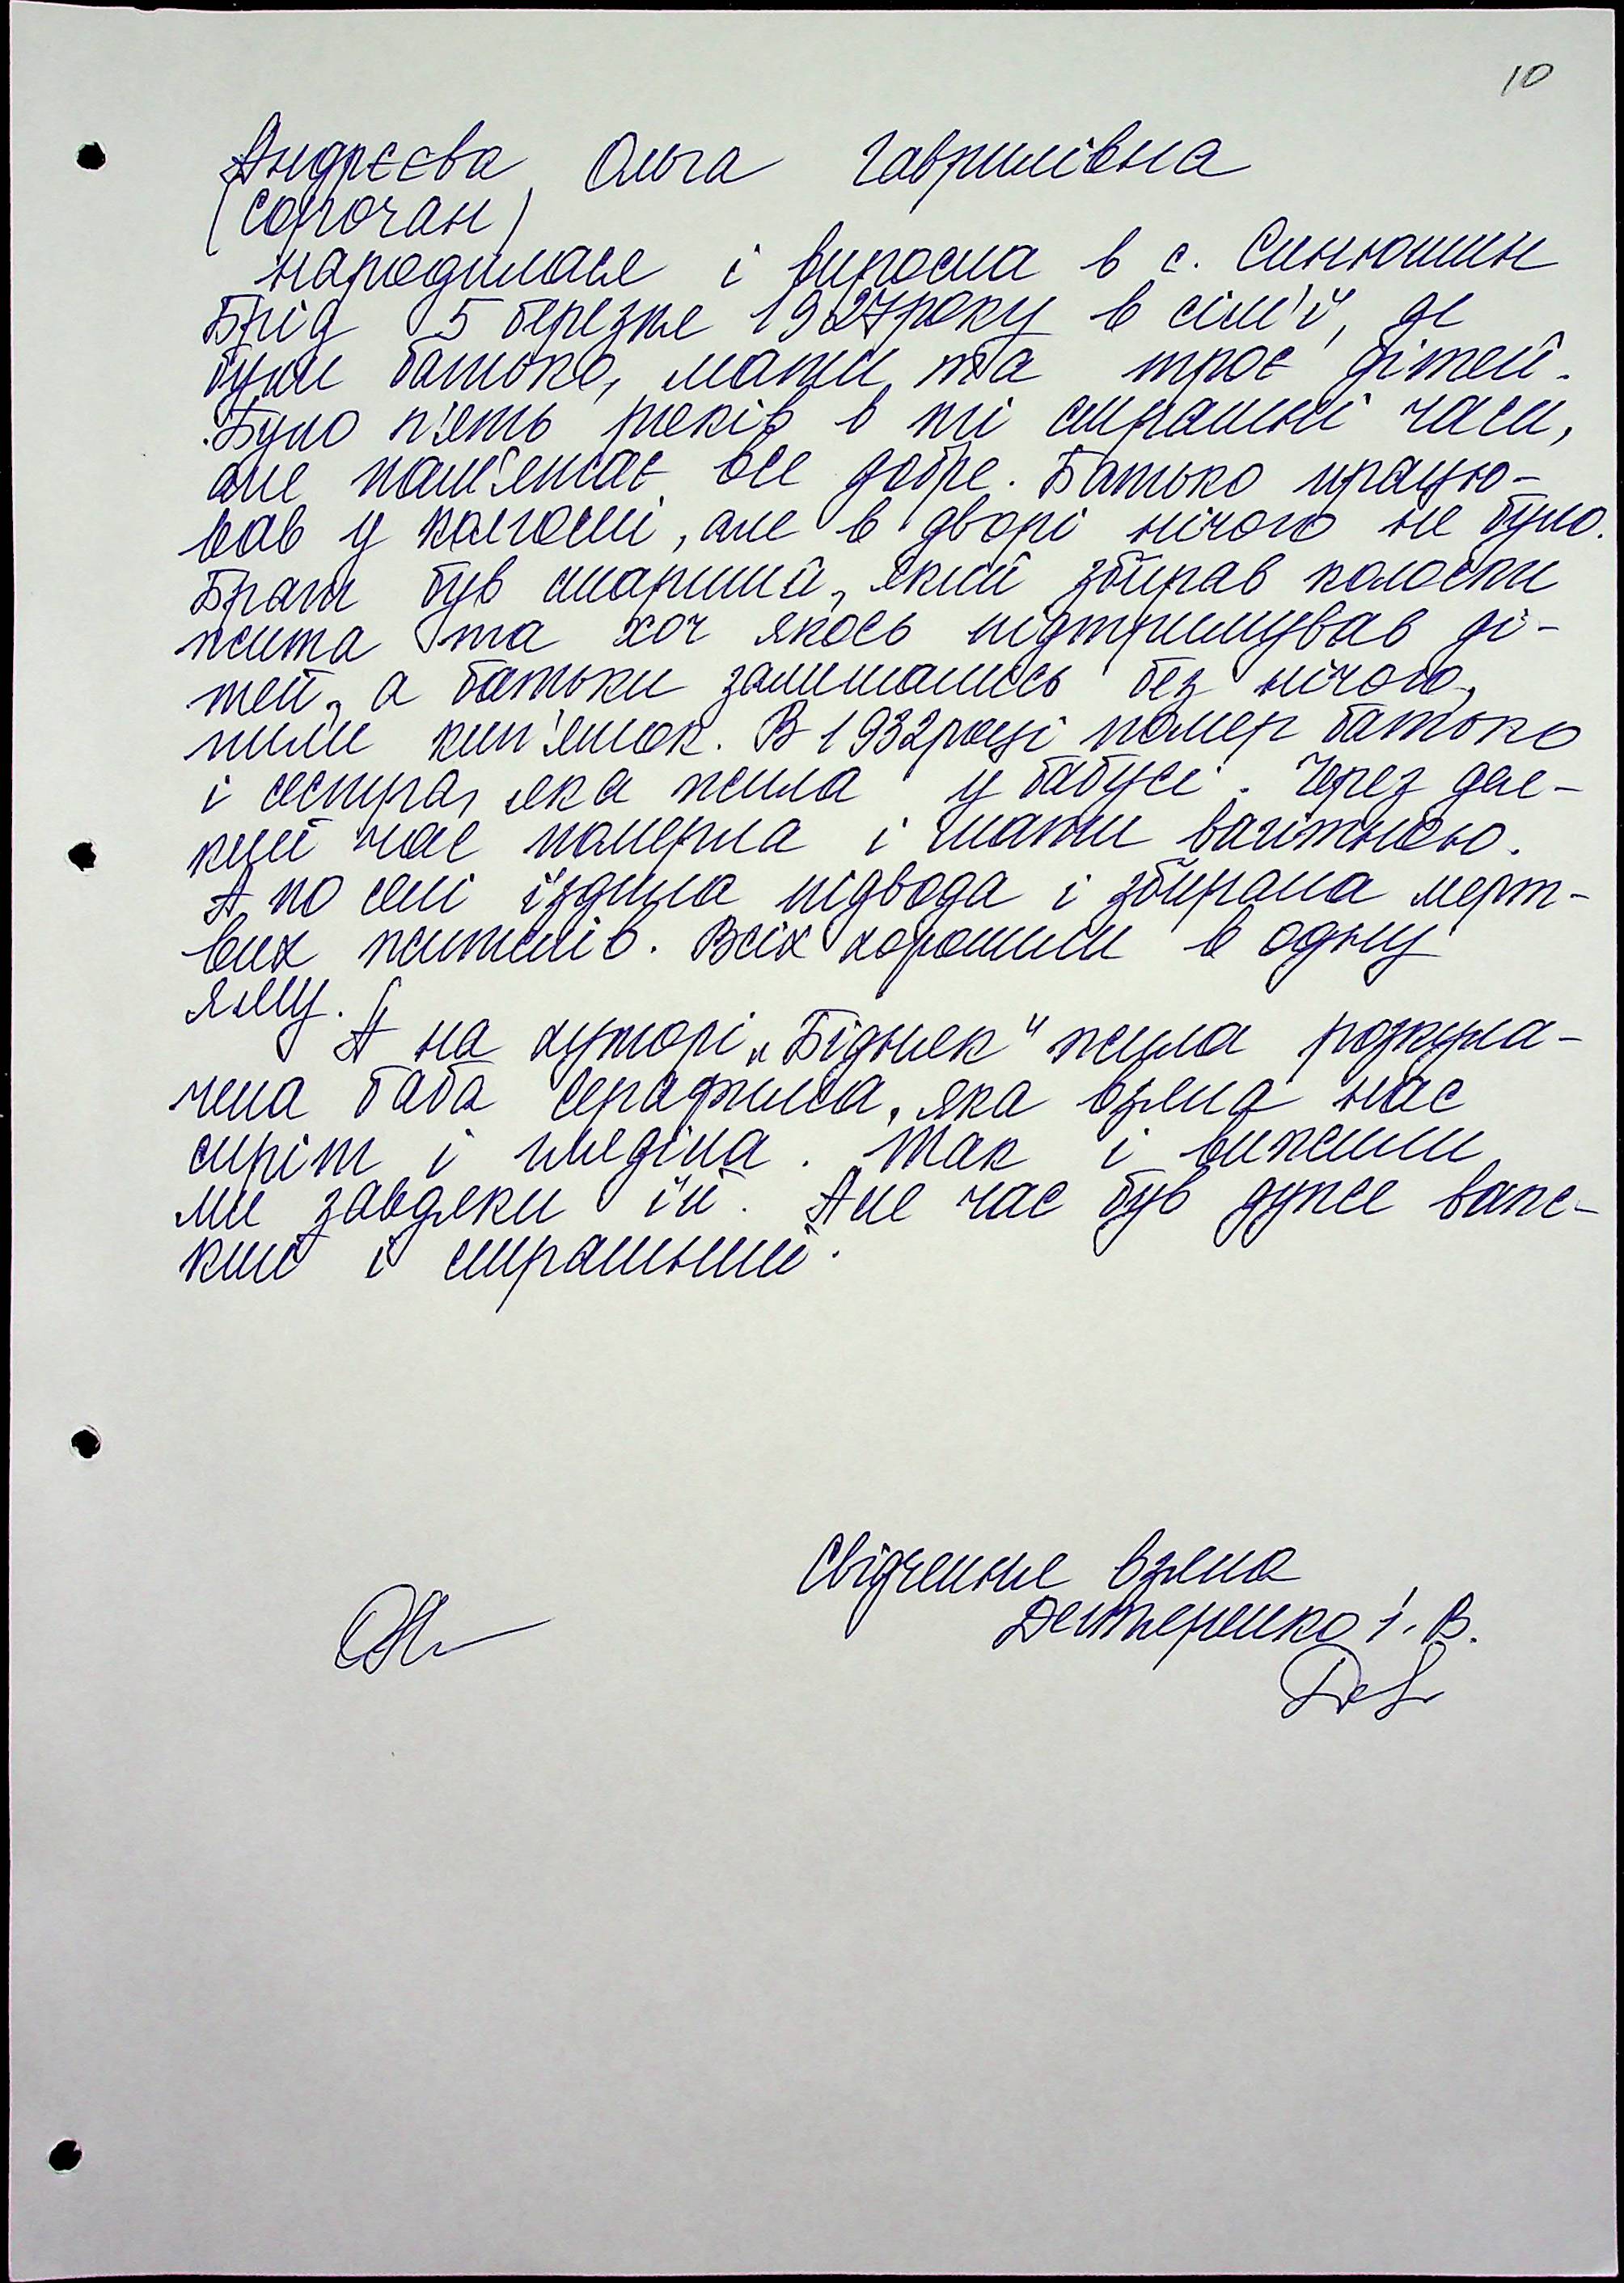 10
Андрєєва Ольга Гаврилівна
(Сорочан)
народилася і виросла в с. Синюшин
Брід 5 березня 1927 року в сім'ї, де
були батько, мати та троє дітей.
Було п'ять років в ті страшні часи,
але пам'ятає все добре. Батько працю-
вав у колгоспі, але в дворі нічого не було.
Брат був старший, який збирав колоски
жита та хоч якось підтримував ді-
тей, а батьки залишались без нічого,
пили кип'яток. В 1932 році помер батько
і сестра, яка жила у бабусі. Через дея-
кий час померла і мати вагітною.
А по селі їздила підвода і збирала мерт-
вих жителів. Всіх хоронили в одну
яму.
А на хуторі „Бідняк" жила розкула-
чена баба Серафима, яка взяла нас
сиріт і гляділа. Так і вижили
ми завдяки їй. Але час був дуже важ-
кий і страшний.
Свідчення взяла
Дегтеренко І. В.